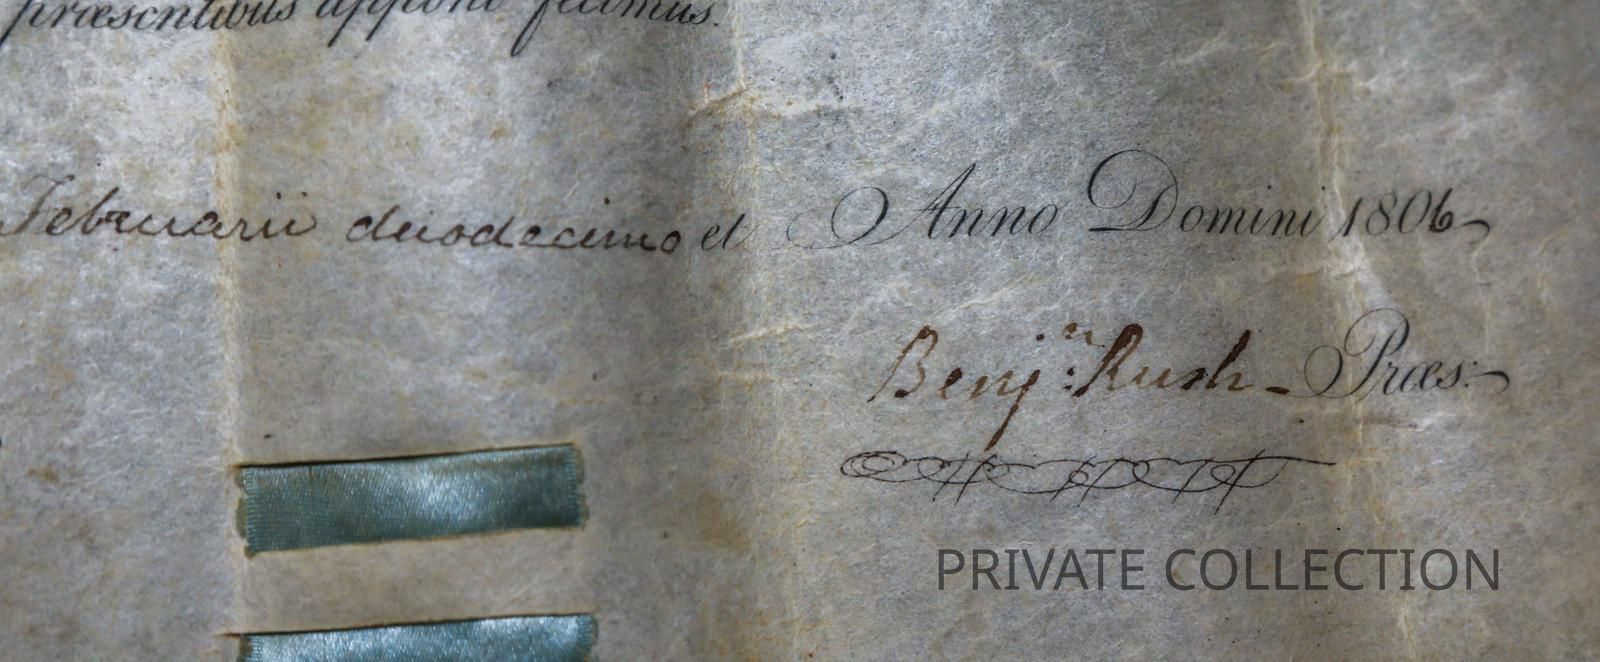 præsentibus apponi fecimus.
Februarii duodecimo et Anno Domini 1806
Benjn: Rush - Præs:
PRIVATE COLLECTION